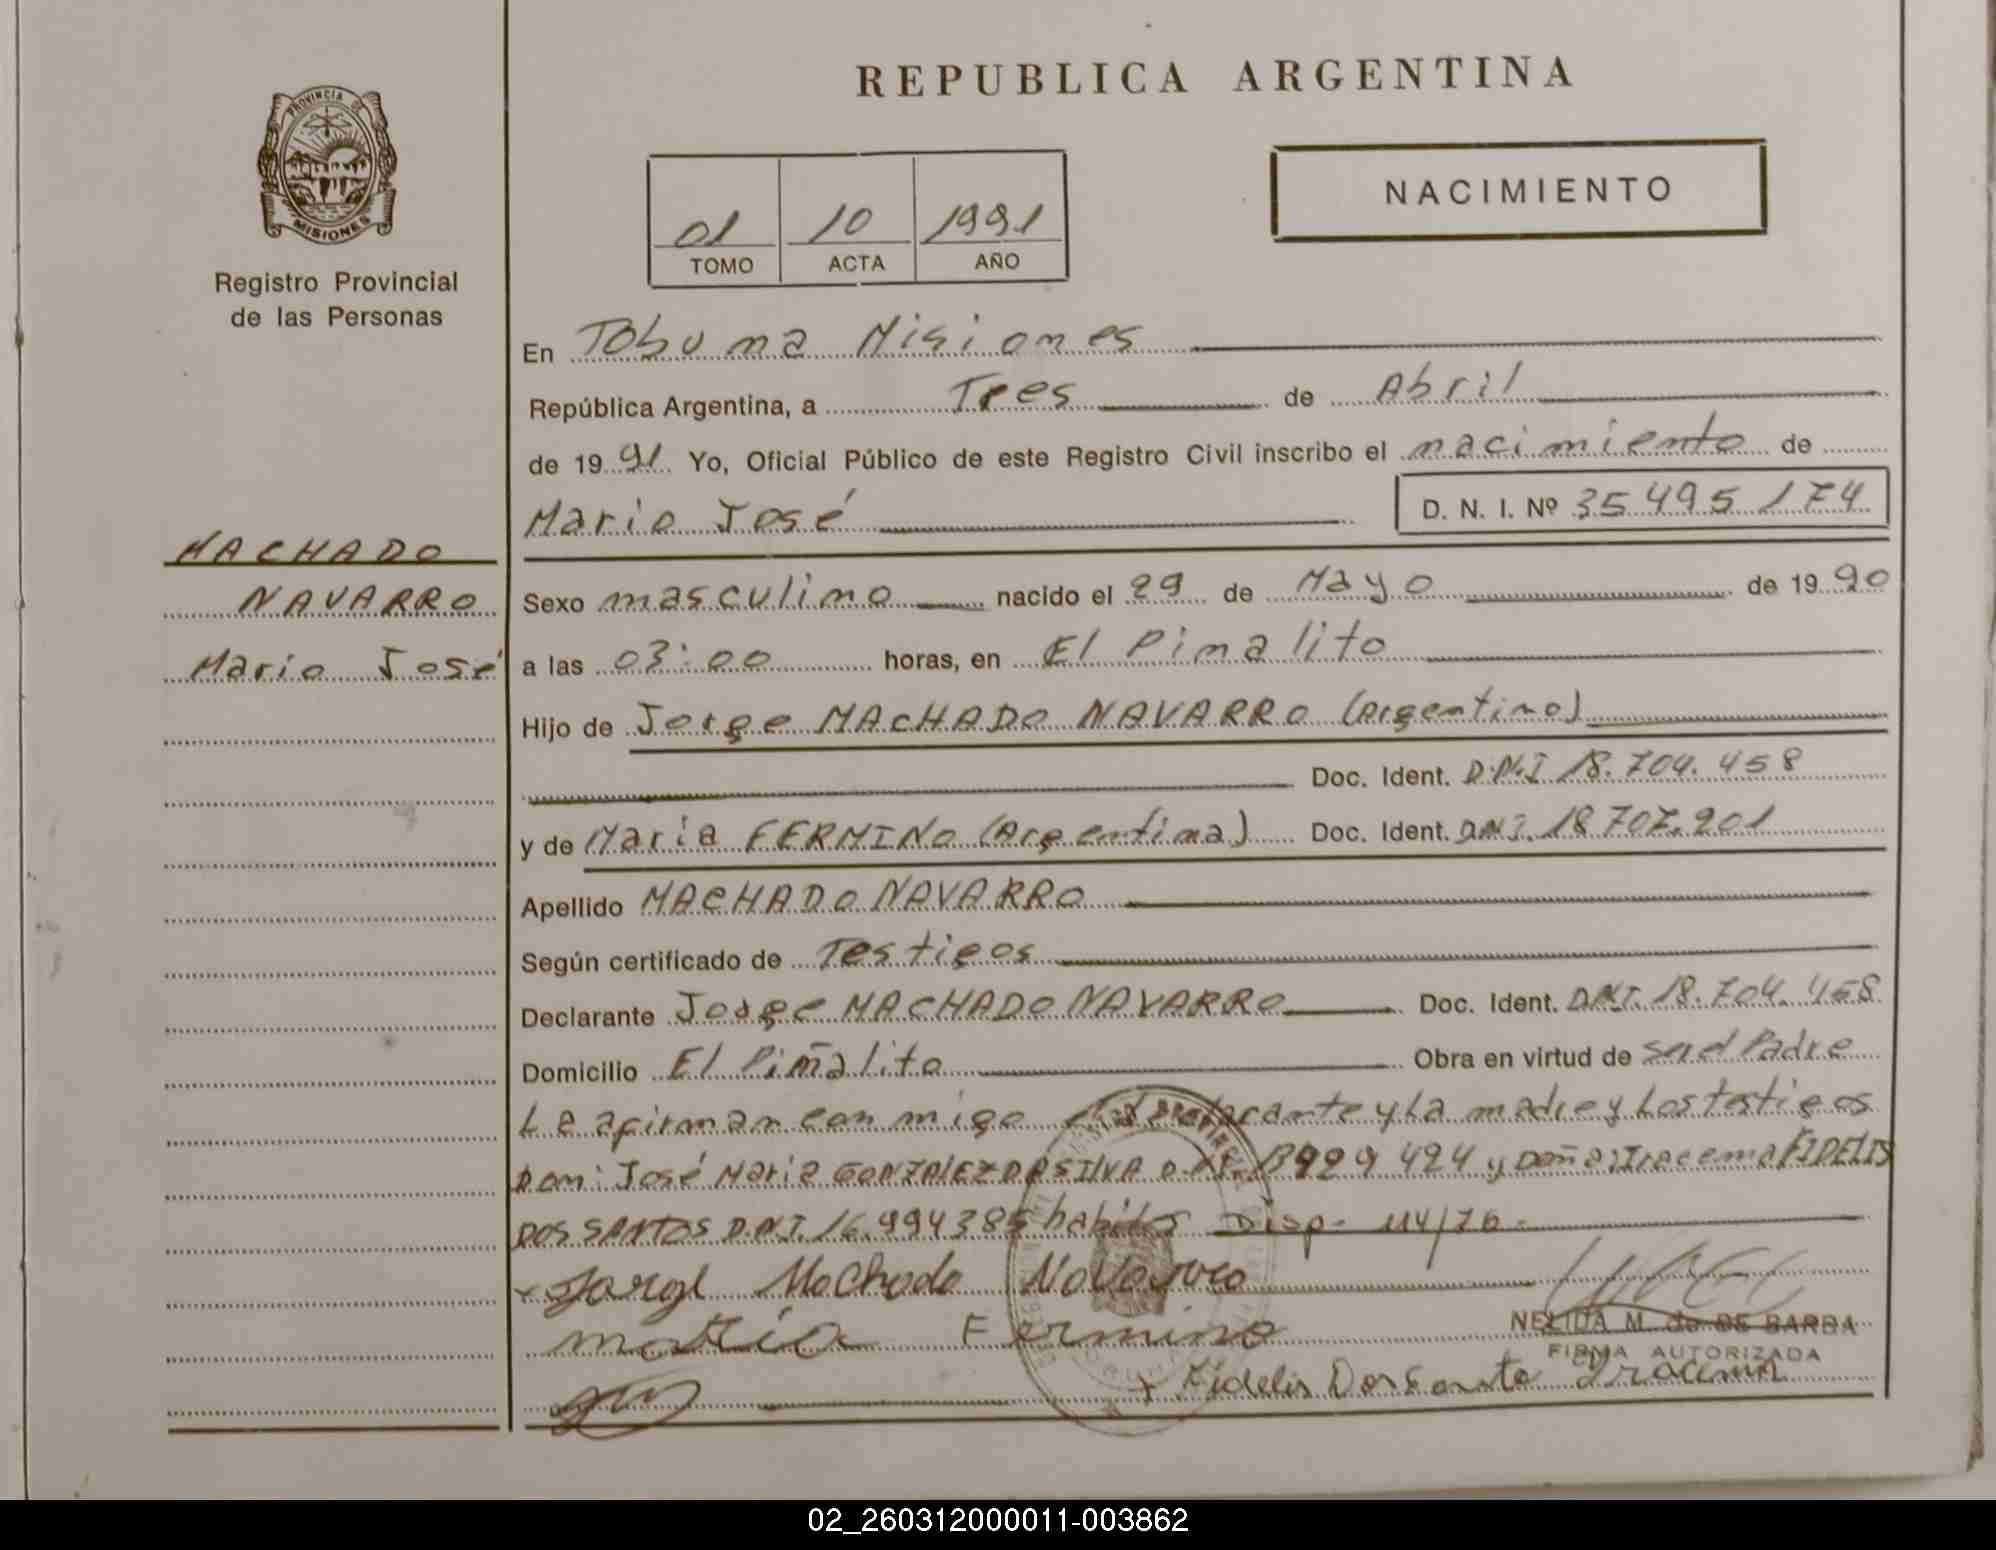 REPUBLICA ARGENTINA
PROVINCIA DE
MISIONES
Registro Provincial
de las Personas
01 10 1991
TOMO ACTA AÑO
NACIMIENTO
En Tobuna Misiones
República Argentina, a Tres de Abril
de 1991 Yo, Oficial Público de este Registro Civil inscribo el nacimiento de
Mario José D. N. I. Nº 35495174
MACHADO
NAVARRO
Mario José
Sexo masculino nacido el 29 de Mayo de 1990
a las 03:00 horas, en El Pinalito
Hijo de Jorge MACHADO NAVARRO (Argentino)
Doc. Ident. D.N.I 18.704.458
y de Maria FERMINO (Argentina) Doc. Ident. D.N.I. 18.707.201
Apellido MACHADO NAVARRO
Según certificado de Testigos
Declarante Jorge MACHADO NAVARRO Doc. Ident. D.N.I. 18.704.458
Domicilio El Piñalito Obra en virtud de Padre
Le afirman con migo el y La madre y Los testigos
Don: José Maria GONZALEZ DA SILVA y Doña: Iracema FIDELIS
DOS SANTOS D.N.I. 16.994385 habiles Disp- 114/76-
Jorge Machado Navarro
maria Fermino
NELIDA M. de DE BARBA
FIRMA AUTORIZADA
Fidelis Dos Iracema
02_260312000011-003862